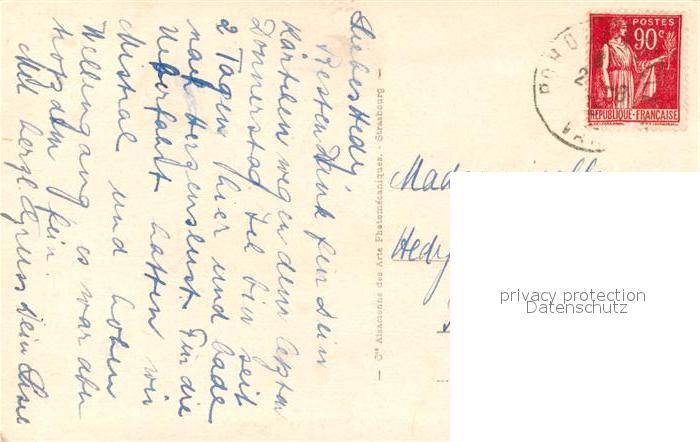 Liebes Hedy,
Besten Dank für Dein
Kärtlein wegen dem letzten
Donnerstag. Ich bin seit
2 Tagen hier und bade
nach Herzenslust. Für die
Ueberfahrt hatten wir
Mistral und hohen
Wellengang es war aber
trotzdem fein.
Mit herzl Gruss Dein
— Cie Alsacienne des Arts Photomécaniques. - Strasbourg —
POSTES
90c
REPUBLIQUE-FRANÇAISE
Mademoiselle
Hedy
privacy protection
Datenschutz